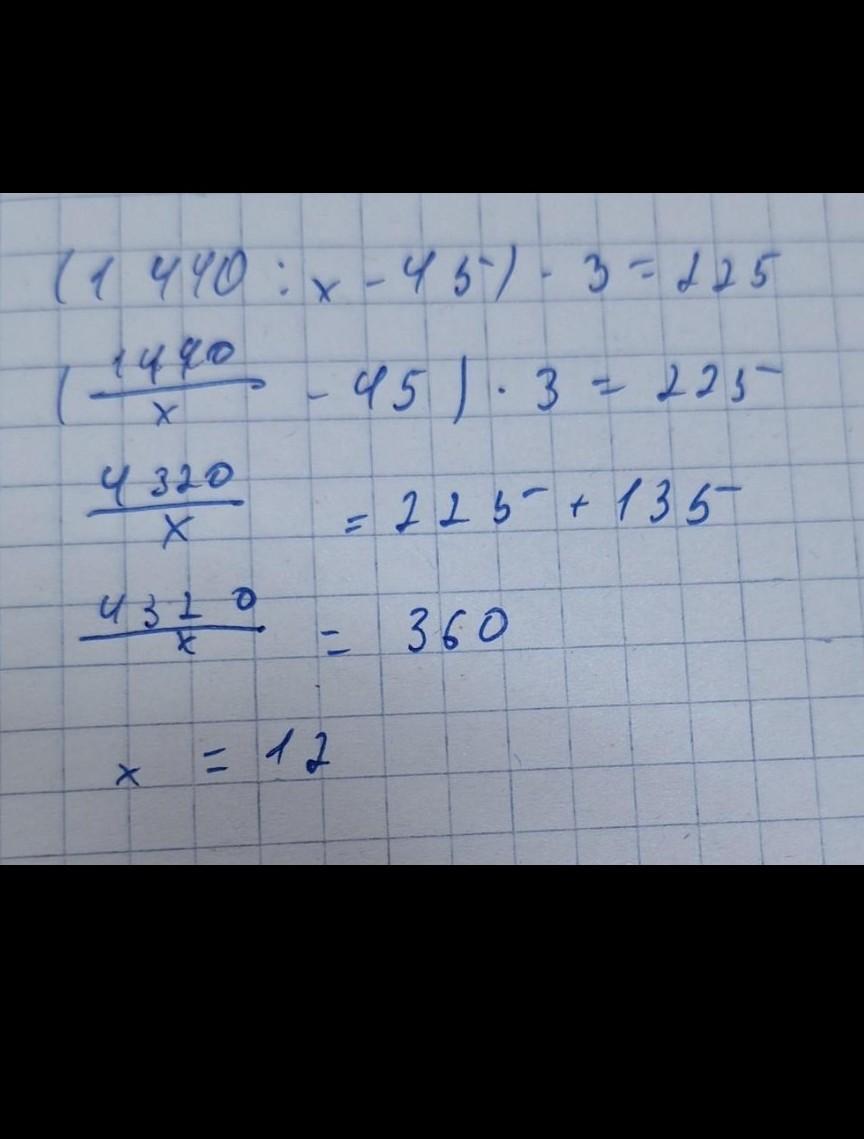 (1 440 : x - 45) · 3 = 225
(1440/x - 45) · 3 = 225
4320/x = 225 + 135
4320/x = 360
x = 12